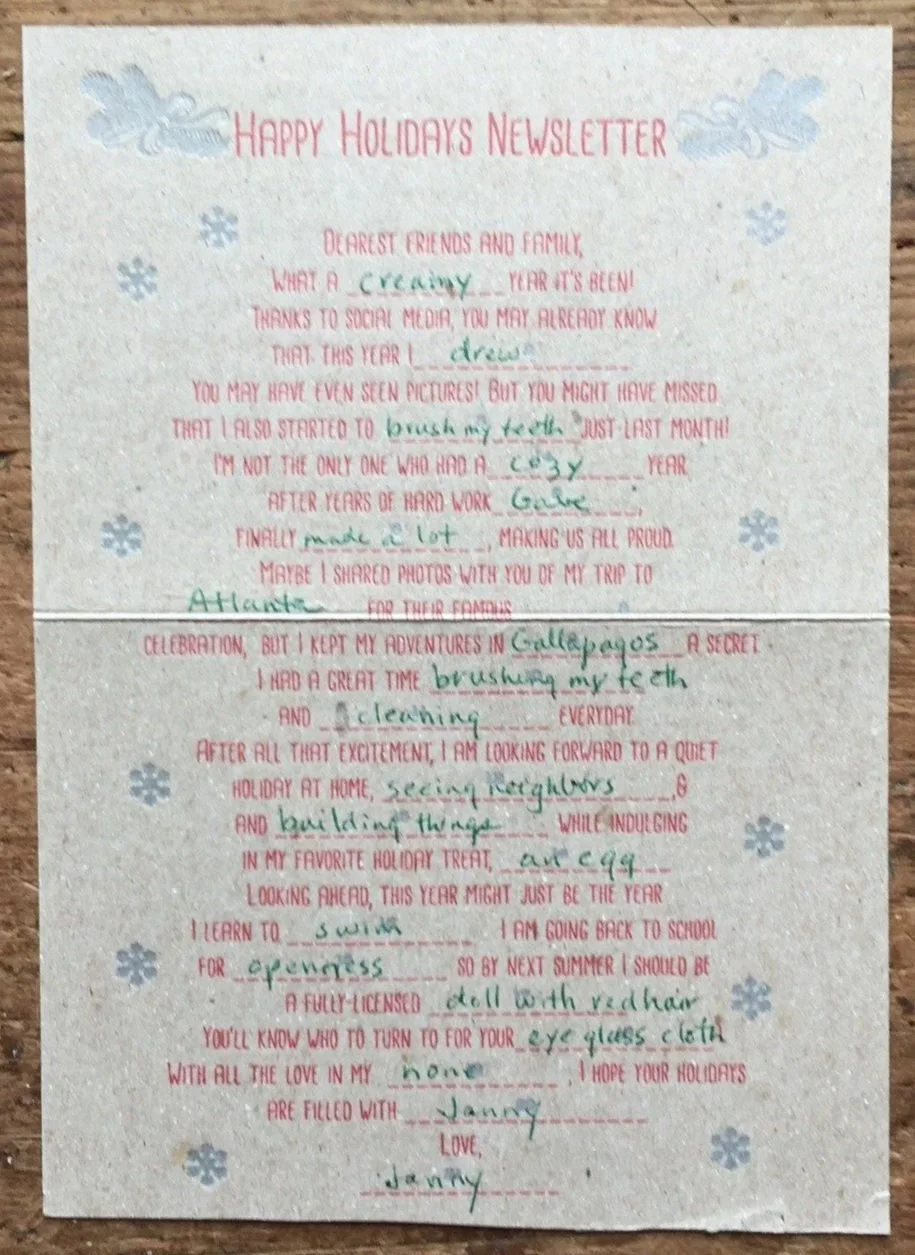 HAPPY HOLIDAYS NEWSLETTER
DEAREST FRIENDS AND FAMILY,
WHAT A creamy YEAR IT'S BEEN!
THANKS TO SOCIAL MEDIA, YOU MAY ALREADY KNOW
THAT THIS YEAR I drew
YOU MAY HAVE EVEN SEEN PICTURES! BUT YOU MIGHT HAVE MISSED
THAT I ALSO STARTED TO brush my teeth JUST LAST MONTH!
I'M NOT THE ONLY ONE WHO HAD A cozy YEAR
AFTER YEARS OF HARD WORK Gabe,
FINALLY made a lot, MAKING US ALL PROUD.
MAYBE I SHARED PHOTOS WITH YOU OF MY TRIP TO
Atlanta FOR THEIR FAMOUS
CELEBRATION, BUT I KEPT MY ADVENTURES IN Gallapagos A SECRET.
I HAD A GREAT TIME brushing my teeth
AND cleaning EVERYDAY.
AFTER ALL THAT EXCITEMENT, I AM LOOKING FORWARD TO A QUIET
HOLIDAY AT HOME, seeing neighbors, &
AND building things WHILE INDULGING
IN MY FAVORITE HOLIDAY TREAT, an egg
LOOKING AHEAD, THIS YEAR MIGHT JUST BE THE YEAR
I LEARN TO swim I AM GOING BACK TO SCHOOL
FOR openness SO BY NEXT SUMMER I SHOULD BE
A FULLY-LICENSED doll with red hair
YOU'LL KNOW WHO TO TURN TO FOR YOUR eye glass cloth
WITH ALL THE LOVE IN MY none, I HOPE YOUR HOLIDAYS
ARE FILLED WITH Janny
LOVE,
Janny